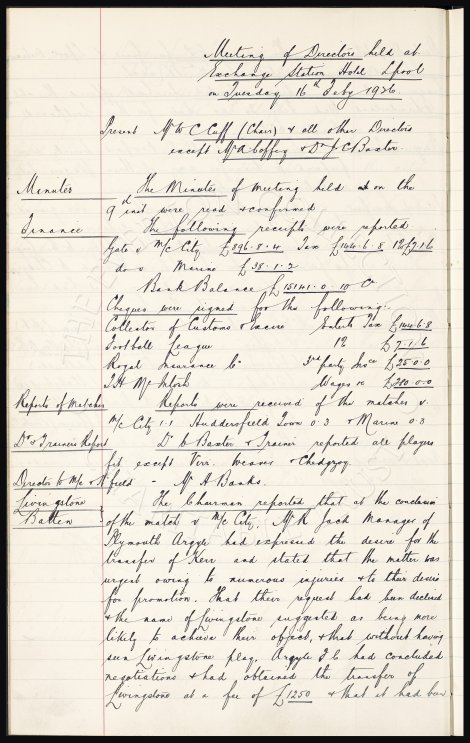 Meeting of Directors held at
Exchange Station Hotel Lpool
on Tuesday 16th Feby 1926
Present Mr W C Cuff (Chair) & all other Directors
except Mr A Coffey & Dr J C Baxter.
Minutes The Minutes of Meeting held on the
9th inst were read & confirmed
Finance The following receipts were reported
Gate v M/c City £896.8.4 Tax £144.6.8 12 £7.1.6
do v Marine £38.1.2
Bank Balance £15141.0.10 Cr
Cheques were signed for the following.
Collector of Customs & Excise Entets Tax £144.6.8
Football League 12 £7.1.6
Royal Insurance Co 3rd party Insce £25.0.0
J.H. McIntosh Wages £280.0.0
Reports of Matches Reports were received of the matches v.
M/c City 1.1 Huddersfield Town 0.3 & Marine 0.3
Dr & Trainers Report Dr Baxter & Trainer reported all players
fit except Virr. Weaver & Chedgzoy.
Director to M/c & H'field - Mr A Banks.
Livingstone The Chairman reported that at the conclusion
Batten of the match v M/c City, Mr R Jack Manager of
Plymouth Argyle had expressed the desire for the
transfer of Kerr and stated that the matter was
urgent owing to numerous injuries & to their desire
for promotion. That their request had been declined
& the name of Livingstone suggested as being more
likely to achieve their object, & that without having
seen Livingstone play, Argyle F C had concluded
negotiations & had obtained the transfer of
Livingstone at a fee of £1250 & that it had been